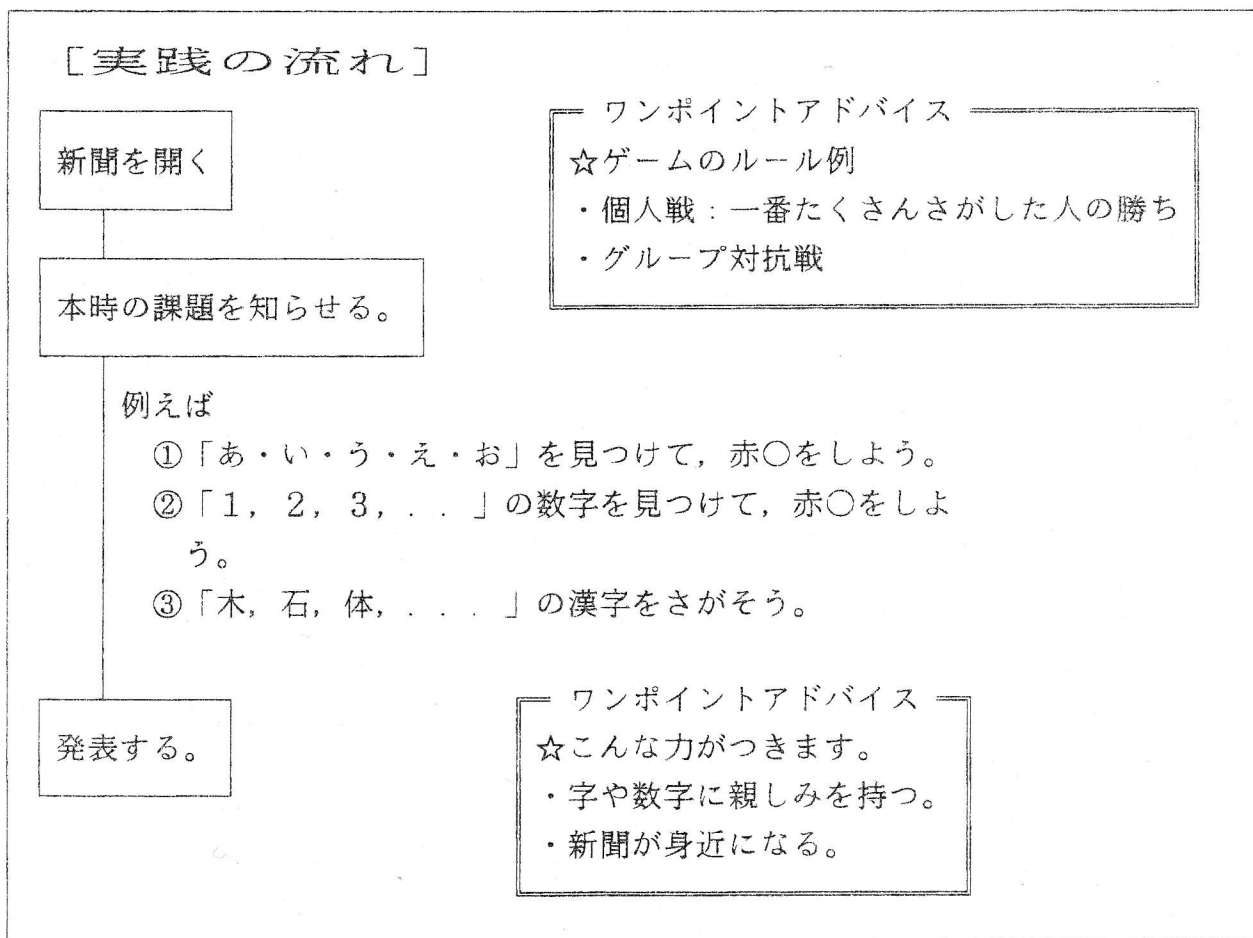 ［実践の流れ］
新聞を開く
ワンポイントアドバイス
☆ゲームのルール例
・個人戦：一番たくさんさがした人の勝ち
・グループ対抗戦
本時の課題を知らせる。
例えば
①「あ・い・う・え・お」を見つけて，赤○をしよう。
②「１，２，３，．．」の数字を見つけて，赤○をしよ
う。
③「木，石，体，．．．」の漢字をさがそう。
発表する。
ワンポイントアドバイス
☆こんな力がつきます。
・字や数字に親しみを持つ。
・新聞が身近になる。